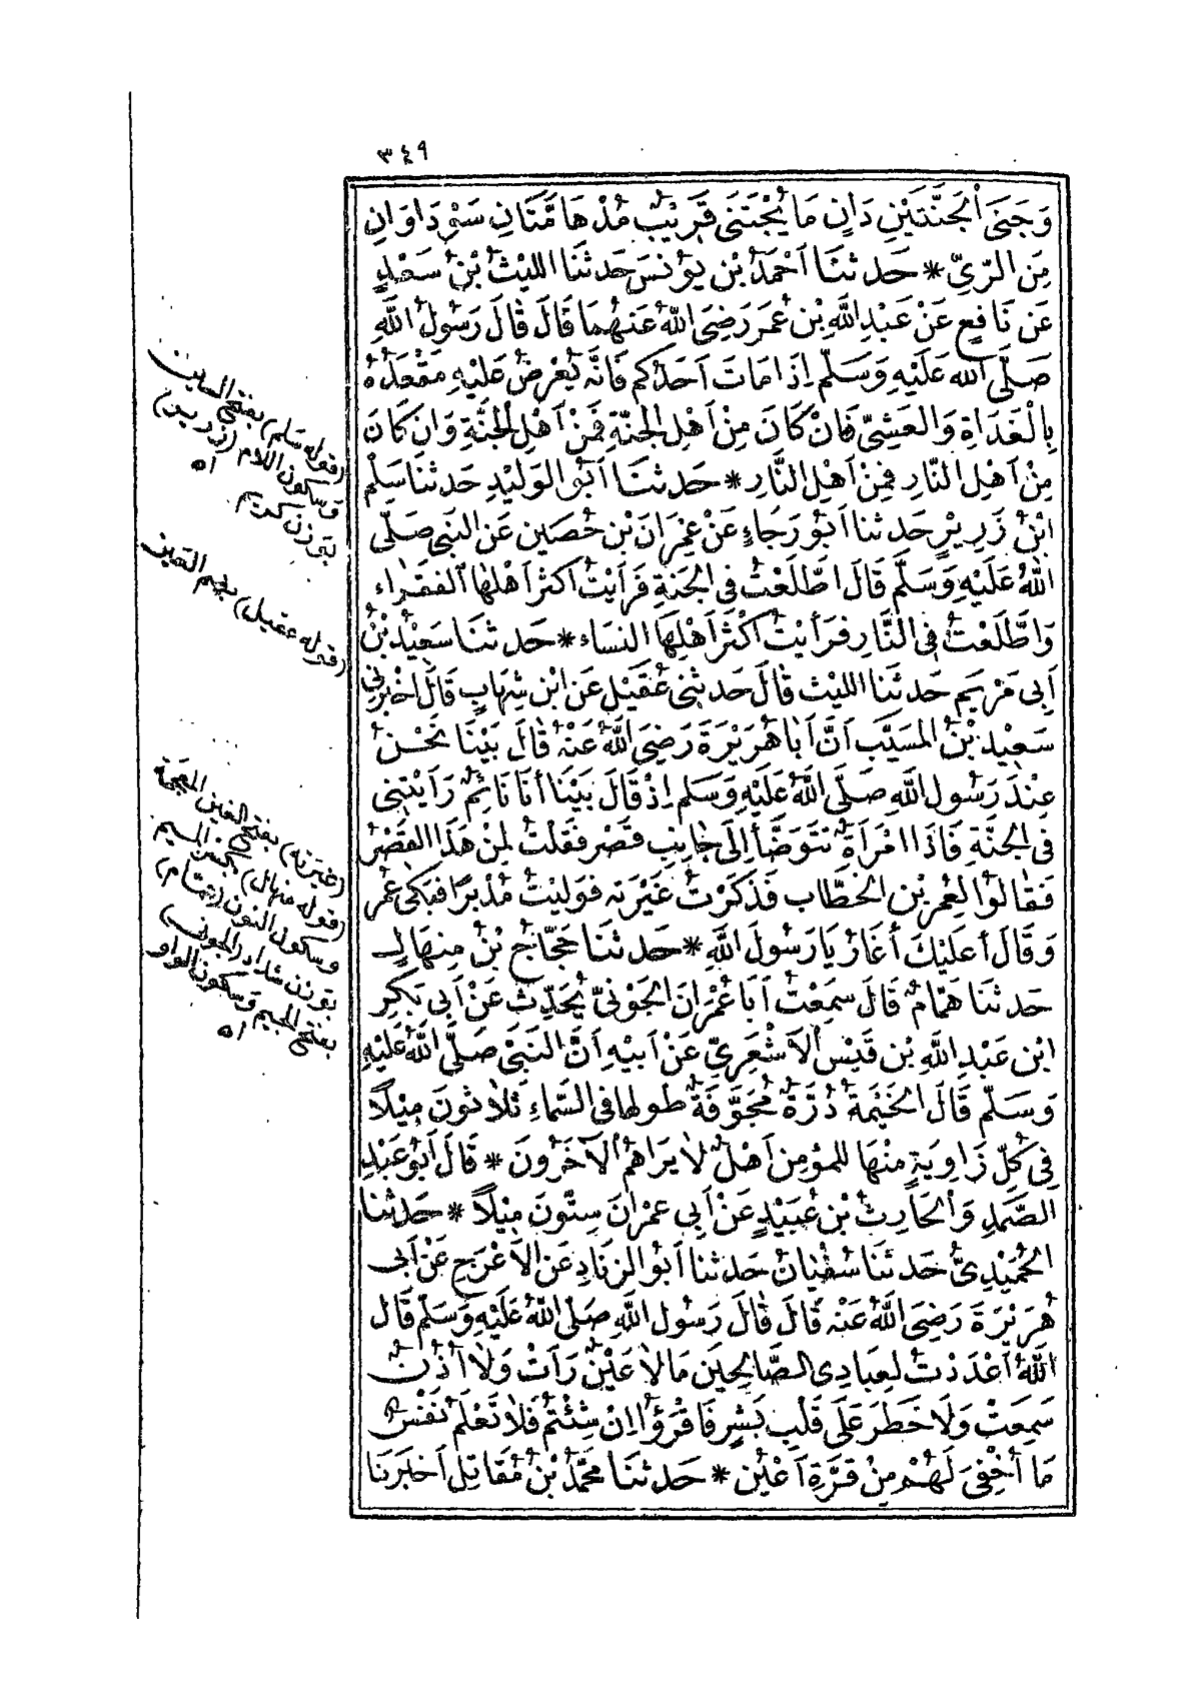 ٣٤٩
وَجَنَى اْلجَنَّتَيْنِ دَانٍ مَا يُجْتَنَى قَرِيْبٌ مُدْهَامَّتَانِ سَوْدَاوَانِ
مِنَ الرِّيِّ * حَدثنَا اَحْمَدُ بْن يُوْنسَ حَدثنَا الليْثُ بْنُ سَعْدٍ
عَن نَافِعٍ عَنْ عَبْدِ اللَّهِ بْن عُمَر رَضِىَ اللهُ عَنْهُمَا قَالَ قَالَ رَسُولُ اللَّهِ
صَلَّى الله عَلَيْهِ وَسَلَّم اِذَا مَاتَ اَحَدُكم فَانَّه يُعْرَضُ عَلَيْهِ مَقْعَدُهُ
بِالْغَدَاةِ وَالعَشِىِّ فَانْ كَانَ مِنْ اَهْلِ الجنَّةِ فَمِنْ اَهْلِ الجنَّةِ وَانْ كَانَ
مِنْ اَهْلِ النَّارِ فمِنْ اَهْلِ النَّارِ * حَدثنَا اَبُو الوَليْدِ حَدثنَا سَلْم
ابْنُ زَرِيْرٍ حَدثنا اَبُو رَجَاءٍ عَنْ عِمْرَانَ بْن حُصَين عَن النَّبى صَلَّى
اللهُ عَلَيْهِ وَسَلَّم قَالَ اطَّلَعْتُ فى الجَنةِ فَرَاَيْتُ اكثرَ اَهْلهَا الفقَرَاء
وَاطَّلَعْتُ فى النَّارِ فرَأيْتُ اَكْثرَ اَهْلِهَا النسَاء * حَدثنَا سَعِيْدُ بْنُ
اَبِى مَرْيَم حَدثنَا الليْث قَالَ حَدثنِى عُقَيْل عَن ابْن شِهَابٍ قَالَ اَخْبَرنِى
سَعِيْد بْنُ المسَيَّب اَنَّ اَبَا هُرَيْرَةَ رَضِىَ اللَّهُ عَنْهُ قَالَ بَيْنَا نَحْنُ
عِنْدَ رَسُول اللَّهِ صَلَّى اللهُ عَلَيْهِ وَسَلم اِذْ قَالَ بَيْنَا أنَا نَائِمٌ رَاَيْتنِى
فى الجنَّةِ فَاذَا امْرَاَةٌ تتَوَضَّأ اِلَى جَانِبِ قصْر فقَلْتُ لمنْ هَذَا القَصْرُ
فَقَالُوا لِعُمر بْن الخطَّاب فَذكَرْتُ غَيْرَته فوَليْتُ مُدْبرًا فبَكى عُمر
وَقَالَ أعَلَيْكَ أغَارُ يَا رَسُولَ اللَّهِ * حَدثنَا حَجَّاجُ بْنُ مِنهَال
حَدثنَا هَمَّامٌ قَالَ سَمِعْتُ اَبَا عِمْرَانَ الجَوْنىَّ يُحَدِّث عَنْ اَبى بَكِر
ابْن عَبْدِ اللَّهِ بْن قَيْس الاَشْعَرِىِّ عَنْ اَبيْهِ اَنَّ النَّبىَّ صَلَّى اللهُ عَليْهِ
وَسَلّم قَالَ الخَيْمَة دُرَّةٌ مُجَوَّفَةٌ طولها فى السَّمَاءِ ثلاَثونَ مِيْلاً
فِى كُلِّ زَاوِيَةٍ مِنْهَا للمؤمِن اَهْلٌ لاَ يَرَاهمُ الآخَرُونَ * قَالَ اَبُو عَبْدِ
الصَّمَدِ وَاْلحَارِثُ بْن عُبَيْدٍ عَنْ اَبِى عمْرَانَ سِتُّونَ مِيْلاً * حَدثنَا
الحُمَيْدِىُّ حَدثنَا سُفْيَانُ حَدثنا اَبُو الزنَادِ عَن الاَعْرَجِ عَنْ اَبى
هُرَيْرَةَ رَضِىَ اللَّهُ عَنْه قَالَ قَالَ رَسُول اللَّهِ صَلَّى اللَّهُ عَلَيْهِ وَسَلّم قَالَ
اللَّهُ اَعْدَدْتُ لعِبَادِى الصَّالحِيَن مَالاَ عَيْنٌ رَاَتْ وَلاَ اُذُنٌ
سَمِعَتْ وَلاَ خَطَرَ عَلَى قَلْبِ بَشرٍ فَاقْرَؤُا اِنْ شِئْتُمْ فَلاَ تَعْلَمُ نَفْسٌ
مَا اُخْفِىَ لَهُمْ مِنْ قرَّةِ اَعْيُنٍ * حَدثنَا مُحَمَّدُ بْنُ مُقَاتِل اَخْبَرَنَا
(قوله سَلم) بفتح السين
وسكون اللام (زرير)
بوزن كريم اه
(قوله عقيل) بضم العين
(غيرته) بفتح الغين المعجمة
(قوله منهال) بكسر الميم
وسكون النون (همّام)
بوزن شداد (الجونى)
بفتح الجيم وسكون الواو
اه